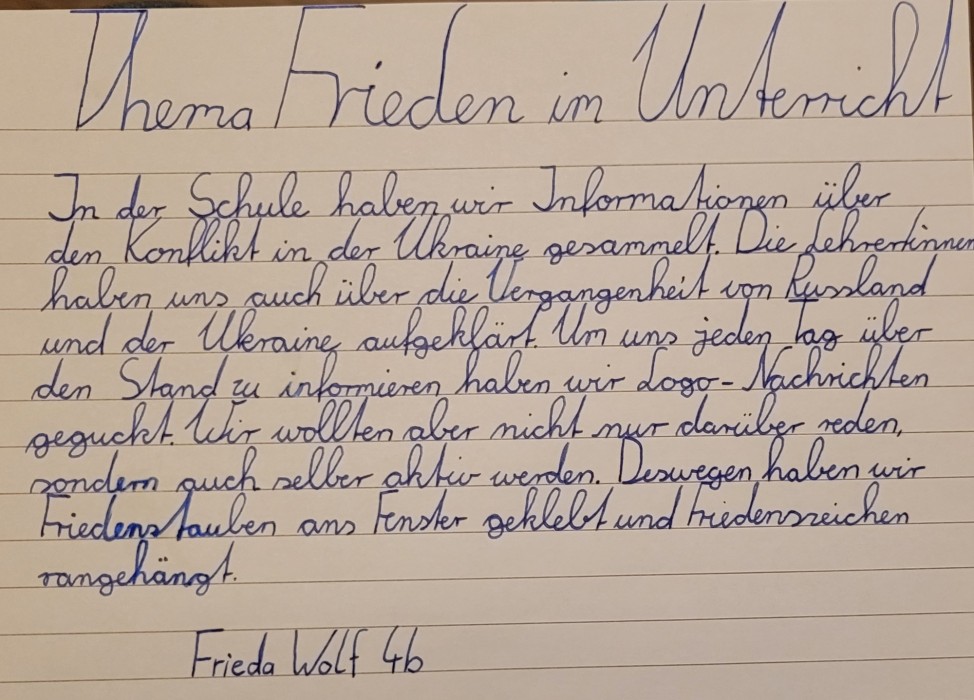 Thema Frieden im Unterricht
In der Schule haben wir Informationen über
den Konflikt in der Ukraine gesammelt. Die Lehrer/innen
haben uns auch über die Vergangenheit von Russland
und der Ukraine aufgeklärt. Um uns jeden Tag über
den Stand zu informieren haben wir Logo-Nachrichten
geguckt. Wir wollten aber nicht nur darüber reden,
sondern auch selber aktiv werden. Deswegen haben wir
Friedenstauben ans Fenster geklebt und Friedenszeichen
rangehängt.
Frieda Wolf 4b